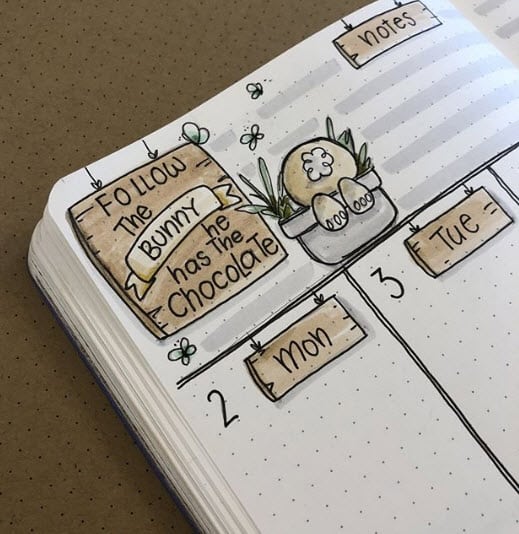 notes
FOLLOW
The
BUNNY
he
has The
Chocolate
Tue
3
Mon
2